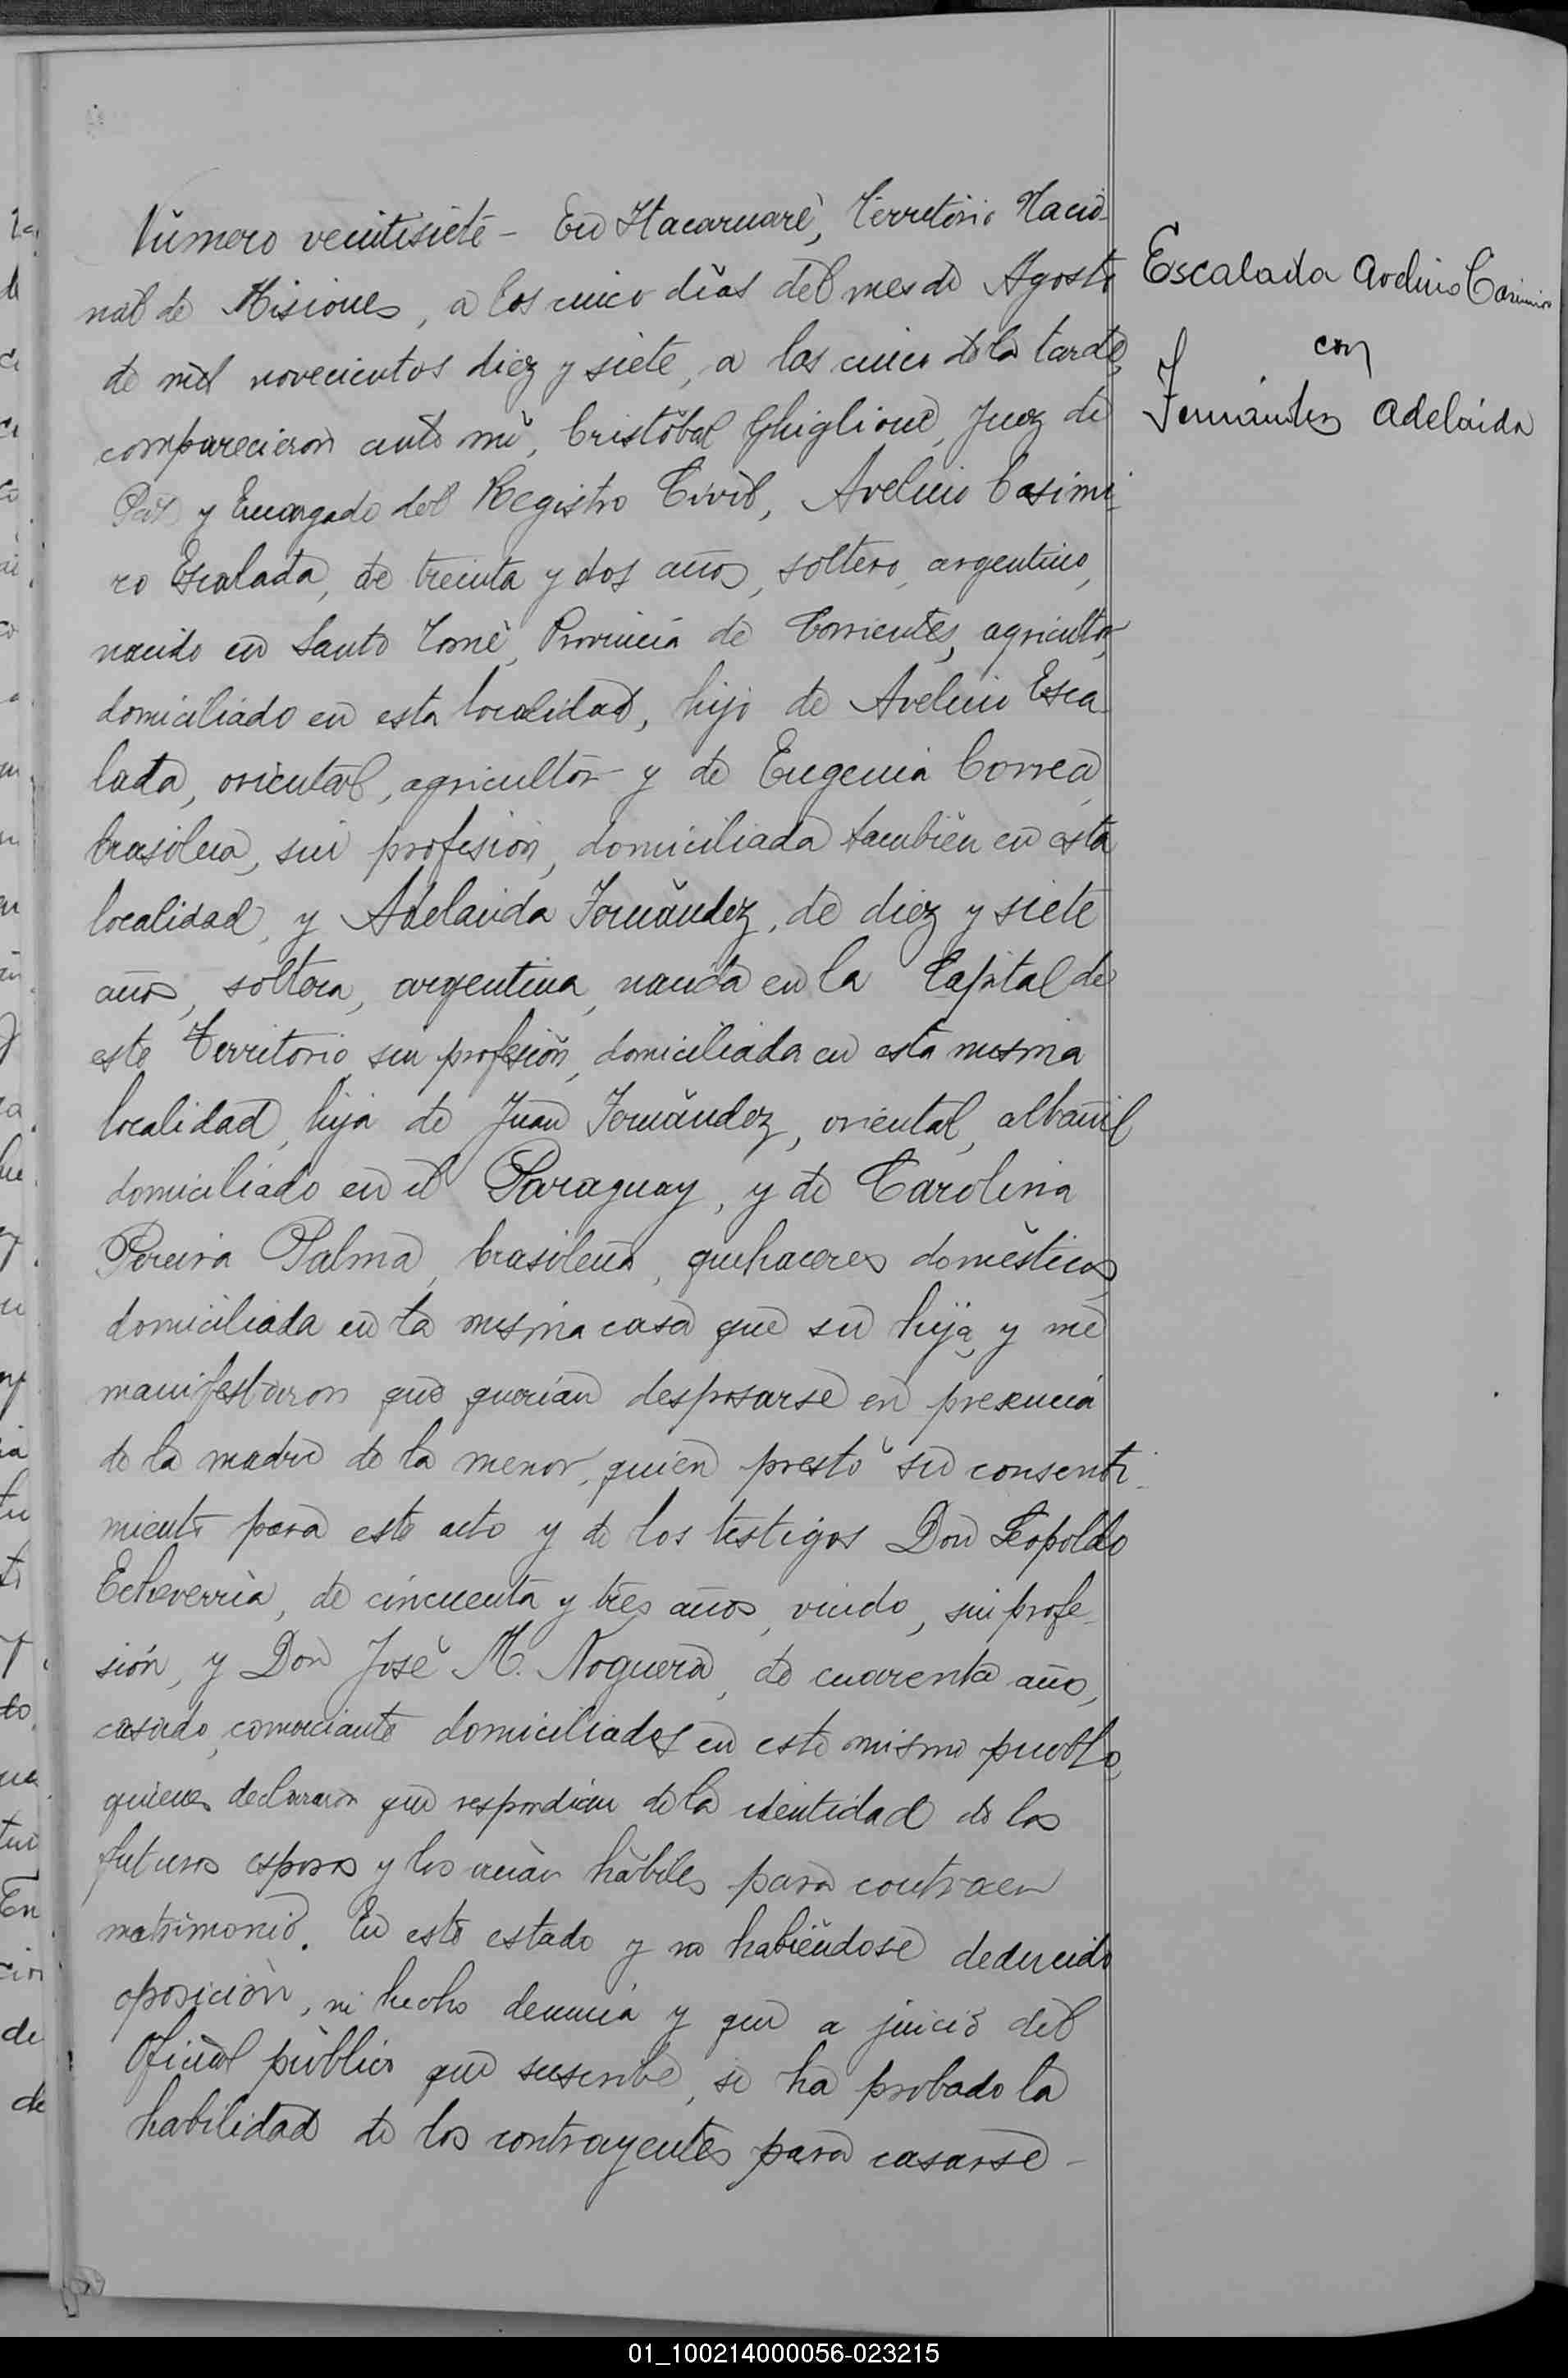 Número veintisiete - En Itacaruaré, Territorio Nacio-
nal de Misiones, a los cinco días del mes de Agosto
de mil novecientos diez y siete, a las cinco de la tarde,
comparecieron ante mí, Cristóbal Ghiglione, Juez de
Paz y Encargado del Registro Civil, Avelino Casimi-
ro Escalada, de treinta y dos años, soltero, argentino,
nacido en Santo Tomé, Provincia de Corrientes, agricultor,
domiciliado en esta localidad, hijo de Avelino Esca-
lada, oriental, agricultor y de Eugenia Correa,
brasilera, sin profesión, domiciliada también en esta
localidad, y Adelaida Fernández, de diez y siete
años, soltera, argentina, nacida en la Capital de
este Territorio, sin profesión, domiciliada en esta misma
localidad, hija de Juan Fernández, oriental, albañil
domiciliado en el Paraguay, y de Carolina
Pereira Palma, brasileña, quehaceres domésticos,
domiciliada en la misma casa que su hija, y me
manifestaron que querían desposarse en presencia
de la madre de la menor, quien prestó su consenti-
miento para este acto y de los testigos Don Leopoldo
Echeverría, de cincuenta y tres años, viudo, sin profe-
sión, y Don José M. Noguera, de cuarenta años,
casado, comerciante domiciliados en este mismo pueblo,
quienes declararon que respondían de la identidad de los
futuros esposos y los creían hábiles para contraer
matrimonio. En este estado y no habiéndose deducido
oposición, ni hecho denuncia y que a juicio del
Oficial público que suscribe, se ha probado la
habilidad de los contrayentes para casarse -
Escalada Avelino Casimiro
con
Fernández Adelaida
01_100214000056-023215